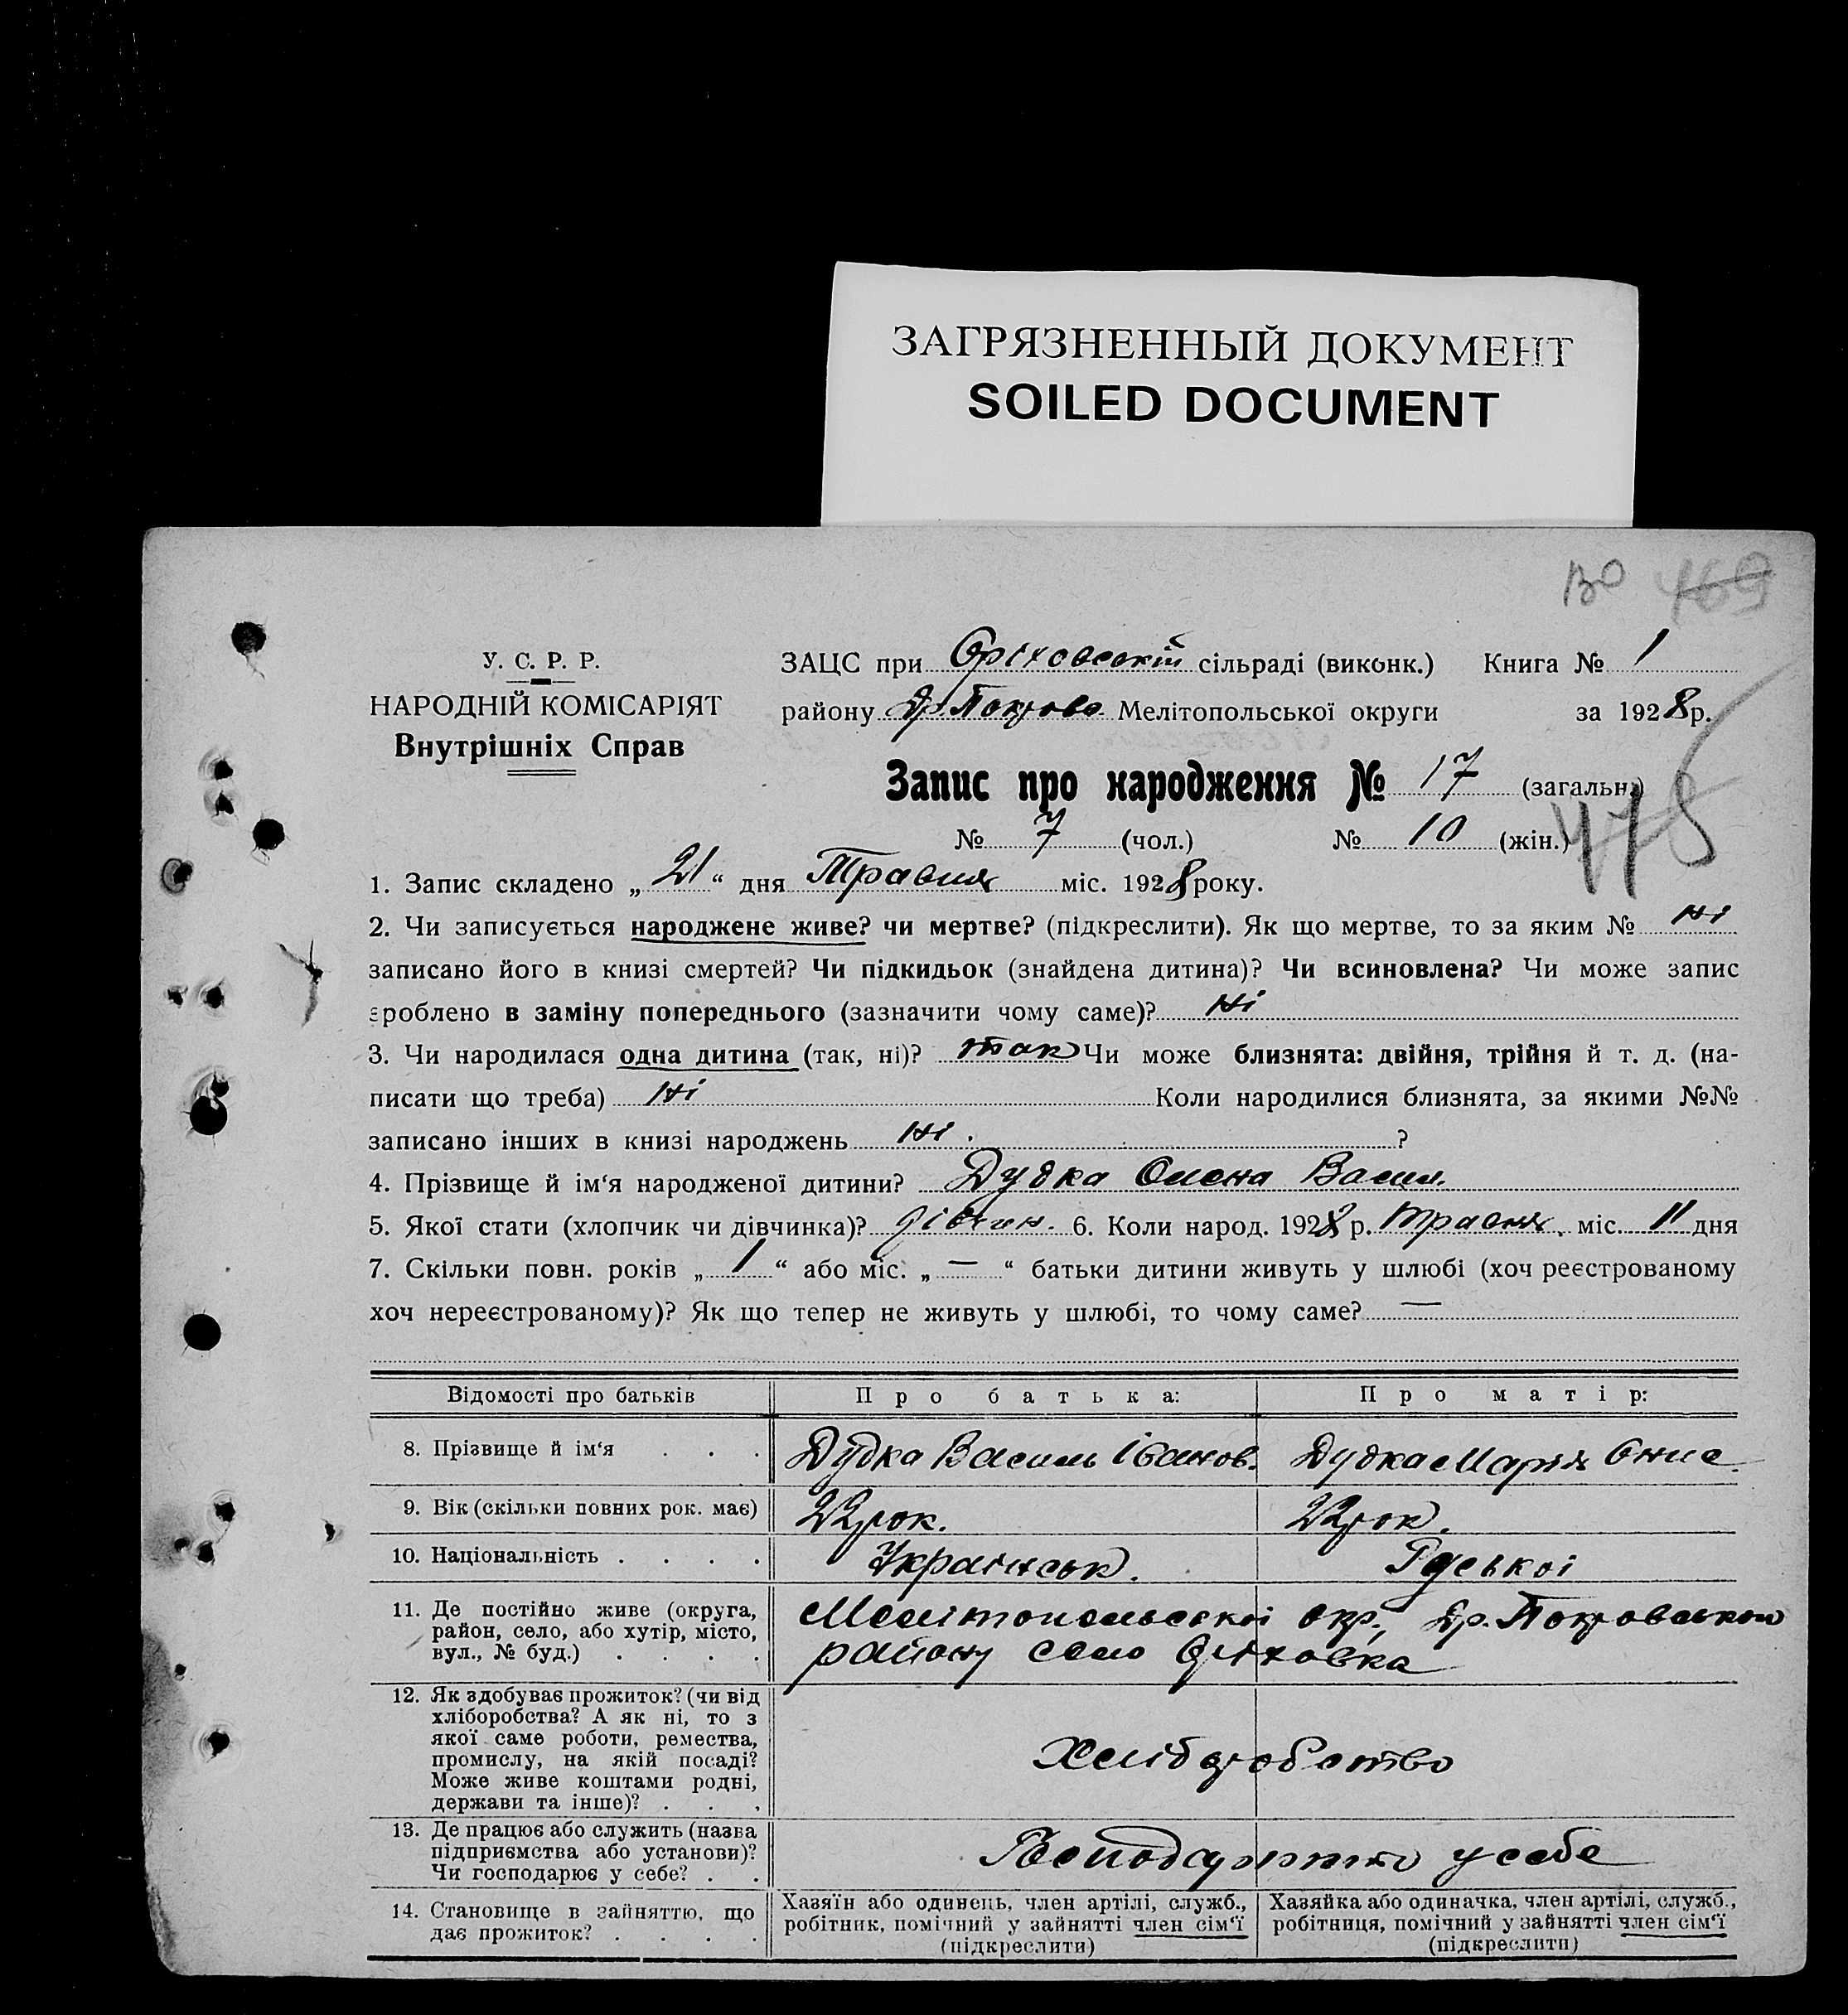 ЗАГРЯЗНЕННЫЙ ДОКУМЕНТ
SOILED DOCUMENT
во 469
У. С. Р. Р.
НАРОДНІЙ КОМІСАРІЯТ
Внутрішніх Справ
ЗАЦС при Оріховській сільраді (виконк.) Книга № 1
району Др. Покров. Мелітопольської округи за 1928 р.
Запис про народження № 17 (загальн.)
№ 7 (чол.) № 10 (жін.)
1. Запис складено „ 21 “ дня Травня міс. 1928 року.
2. Чи записується народжене живе? чи мертве? (підкреслити). Як що мертве, то за яким № ні
записано його в книзі смертей? Чи підкидьок (знайдена дитина)? Чи всиновлена? Чи може запис
зроблено в заміну попереднього (зазначити чому саме)? ні
3. Чи народилася одна дитина (так, ні)? так Чи може близнята: двійня, трійня й т. д. (на-
писати що треба) ні Коли народилися близнята, за якими №№
записано інших в книзі народжень ні . ?
4. Прізвище й ім‘я народженої дитини? Дудка Олена Васил.
5. Якої стати (хлопчик чи дівчинка)? дівчин. 6. Коли народ. 1928 р. травня . міс. 11 дня
7. Скільки повн. років „ 1 “ або міс. „ — “ батьки дитини живуть у шлюбі (хоч реєстрованому
хоч нереєстрованому)? Як що тепер не живуть у шлюбі, то чому саме? —
Відомості про батьків Про батька: Про матір:
8. Прізвище й ім‘я . . . Дудка Василь Іванов. Дудка Марія Онис.
9. Вік (скільки повних рок. має) 22 рок. 22 рок.
10. Національність . . . . Українськ. Руської
11. Де постійно живе (округа,
район, село, або хутір, місто,
вул., № буд.) . . . .
Мелітопольської окр., Др. Покровського
району село Оріховка
12. Як здобуває прожиток? (чи від
хліборобства? А як ні, то з
якої саме роботи, ремества,
промислу, на якій посаді?
Може живе коштами родні,
держави та інше)? . . .
Хліборобство
13. Де працює або служить (назва
підприємства або установи)?
Чи господарює у себе? . .
у себе
14. Становище в зайняттю, що
дає прожиток? . . . .
Хазяїн або одинець, член артілі, служб.,
робітник, помічний у зайнятті член сім‘ї
(підкреслити)
Хазяйка або одиначка, член артілі, служб.,
робітниця, помічний у зайнятті член сім‘ї
(підкреслити)